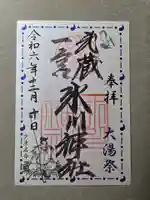 奉拝
大湯祭
武蔵
一宮
氷川神社
令和六年十二月十日